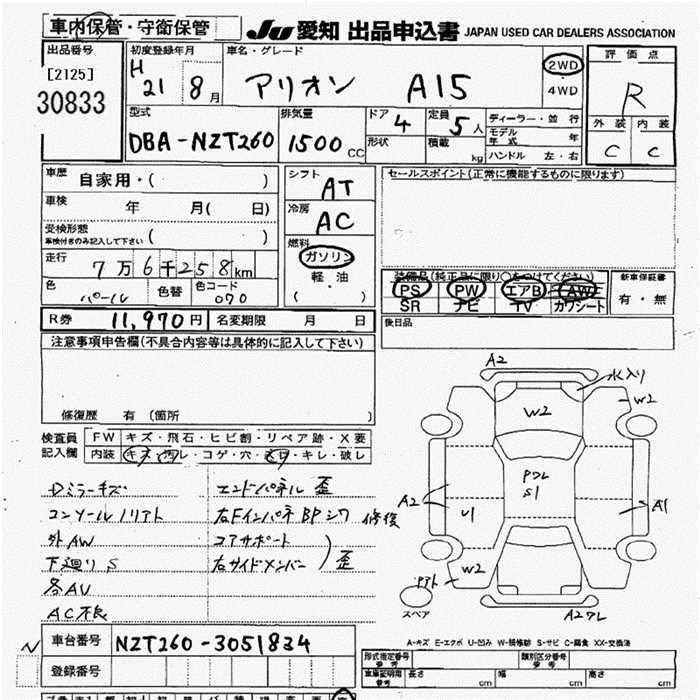 車内保管・守衛保管
JU 愛知 出品申込書 JAPAN USED CAR DEALERS ASSOCIATION
出品番号
[2125]
30833
初度登録年月
H 21 8月
車名・グレード
アリオン A15
2WD
4WD
評価点
R
外装 内装
C C
型式
DBA-NZT260
排気量
1500 CC
ドア
4
定員
5人
形状
積載 kg
ディーラー・並行
モデル年式 年
ハンドル 左・右
車歴
自家用・( )
車検 年 月( 日)
受検形態
車検付きのみ記入して下さい ( )
走行
7万6千258km
色 パール 色替 色コード 070
シフト
AT
冷房
AC
燃料
ガソリン
軽・油
( )
セールスポイント(正常に機能するものに限ります)
装備品(純正品に限り○をつけてください)
PS PW エアB AW
SR ナビ TV カワシート
新車保証書
有・無
後日品
R券 11,970円 名変期限 月 日
注意事項申告欄(不具合内容等は具体的に記入して下さい)
修復歴 有 (箇所 )
検査員記入欄
FW キズ・飛石・ヒビ割・リペア跡・X要
内装 キズ・汚レ・コゲ・穴・・キレ・破レ
Dミラーキズ
コンソールノリアト
外AW
下廻りS
各AU
AC不良
エンドパネル 歪
右Fインパネ BP シワ 修後
コアサポート
右サイドメンバー 歪
A2
水入り
W2
W2
PワレS1
A2
U1
A1
W2
スペア
A2ワレ
A-キズ E-エクボ U-凹み W-板修跡 S-サビ C-腐食 XX-交換済
車台番号 NZT260-3051834
登録番号
形式指定番号
参考
類別区分番号
参考
車庫証明用
参考
長さ cm 幅 cm 高さ cm